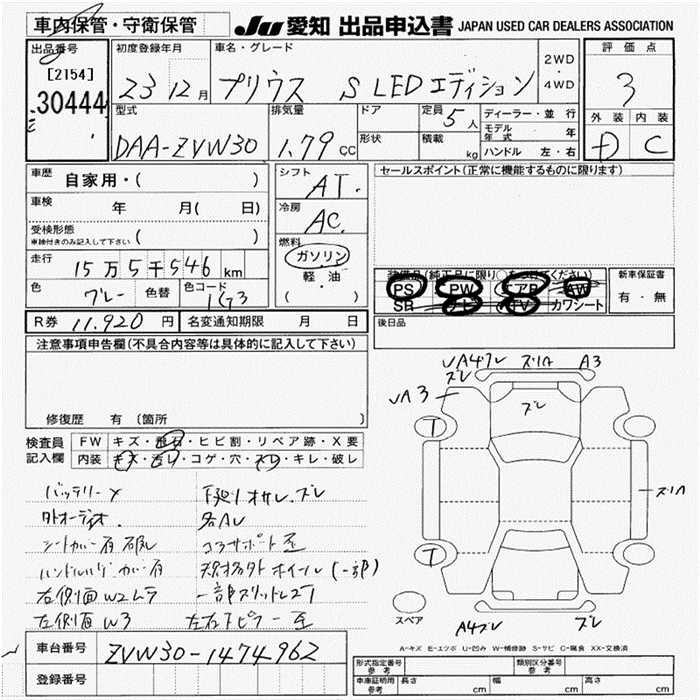 車内保管・守衛保管 JU 愛知 出品申込書 JAPAN USED CAR DEALERS ASSOCIATION
出品番号 初度登録年月 車名・グレード 2WD ・ 4WD 評価点
[2154] 30444 23 12月 プリウス S LEDエディション 3
型式 排気量 ドア 定員 5人 ディーラー・並行 外装 内装
DAA-ZVW30 1.79 CC 形状 積載 kg モデル年式 年 D C
ハンドル 左・右
車歴 自家用・( ) シフト AT. セールスポイント(正常に機能するものに限ります)
車検 年 月(日) 冷房 AC.
受検形態 車検付きのみ記入して下さい ( ) 燃料 ガソリン
走行 15万5千546km 軽・油 装備品(純正品に限り○をつけてください) 新車保証書
色 グレー 色替 色コード 1G3 ( ・ ) PS PW エアB AW 有・無
SR ナビ TV カワシート
R券 11.920円 名変通知期限 月 日 後日品
注意事項申告欄(不具合内容等は具体的に記入して下さい)
修復歴 有 〔箇所 〕
検査員記入欄 FW キズ・飛石・ヒビ割・リペア跡・X要
内装 キズ・汚レ・コゲ・穴・スレ・キレ・破レ
バッテリーX 下廻りオサレ.ズレ
外オーディオ. 各AU
シートカバー有 破レ コアサポート歪
ハンドルカバー有 規格外ホイール(一部)
右側面W2ムラ
左側面W3 左右下ピラー歪
車台番号 ZVW30-1474962
登録番号
UA4ズレ ズリA A3
ズレ
UA3 ズレ
T
ズリA
T
スペア A4ズレ ズレ
A-キズ E-エクボ U-凹み W-補修跡 S-サビ C-腐食 XX-交換済
形式指定番号 参考 類別区分番号 参考
車庫証明用 参考 長さ cm 幅 cm 高さ cm